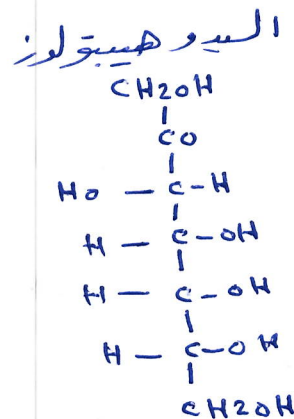 السيدو هيبتولوز
CH2OH
CO
Ho — C - H
H — C - OH
H — C - OH
H — C - OH
CH2OH